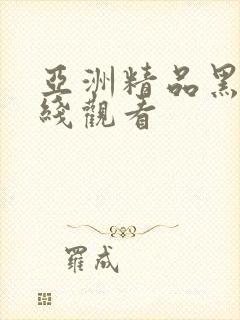 亞洲精品黑
綫觀看
羅成